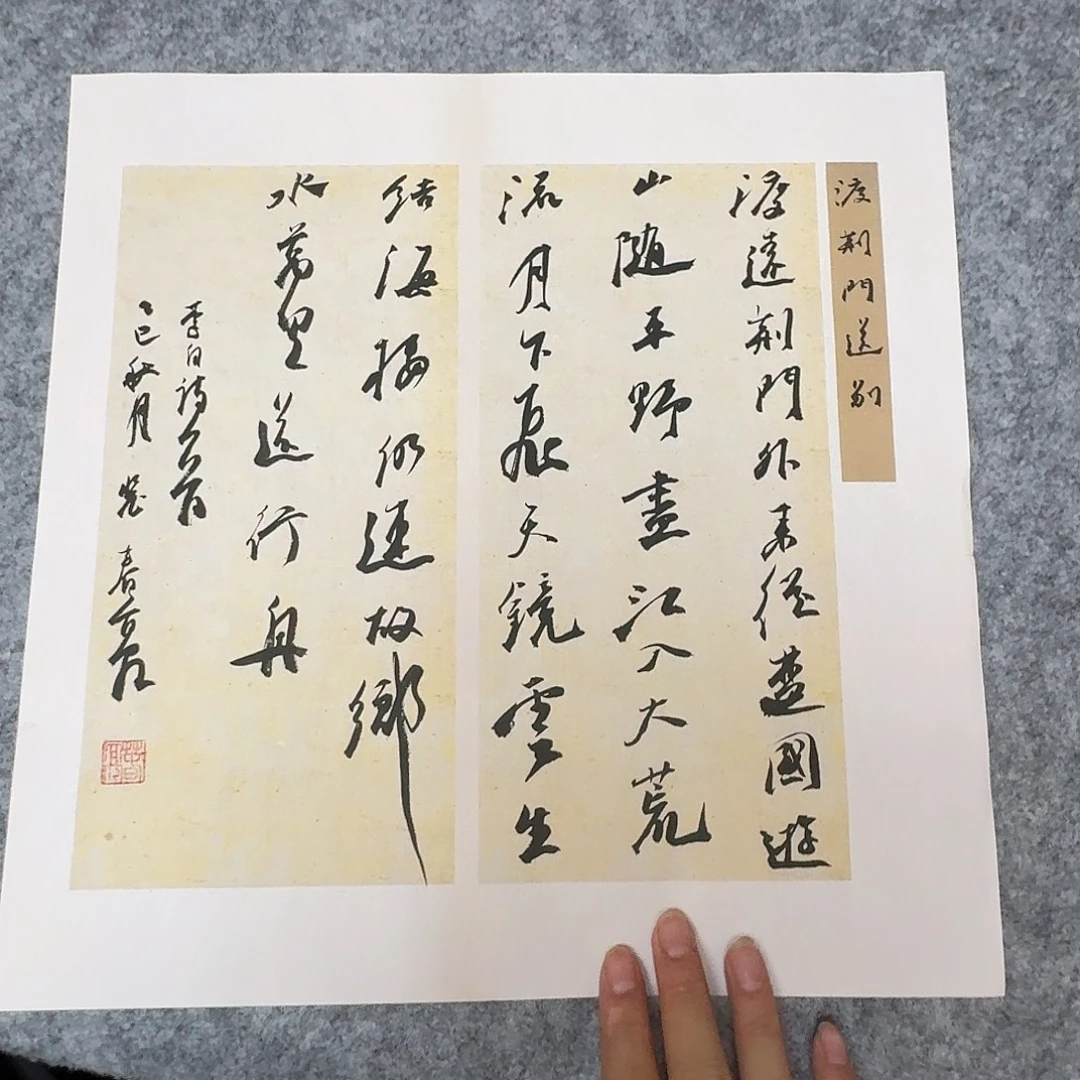 渡荆門送别
渡遠荆門外来從楚國遊
山随平野盡江入大荒
流月下飛天鏡雲生
结海楼仍連故鄉
水萬里送行舟
李白詩
乙巳秋月 春